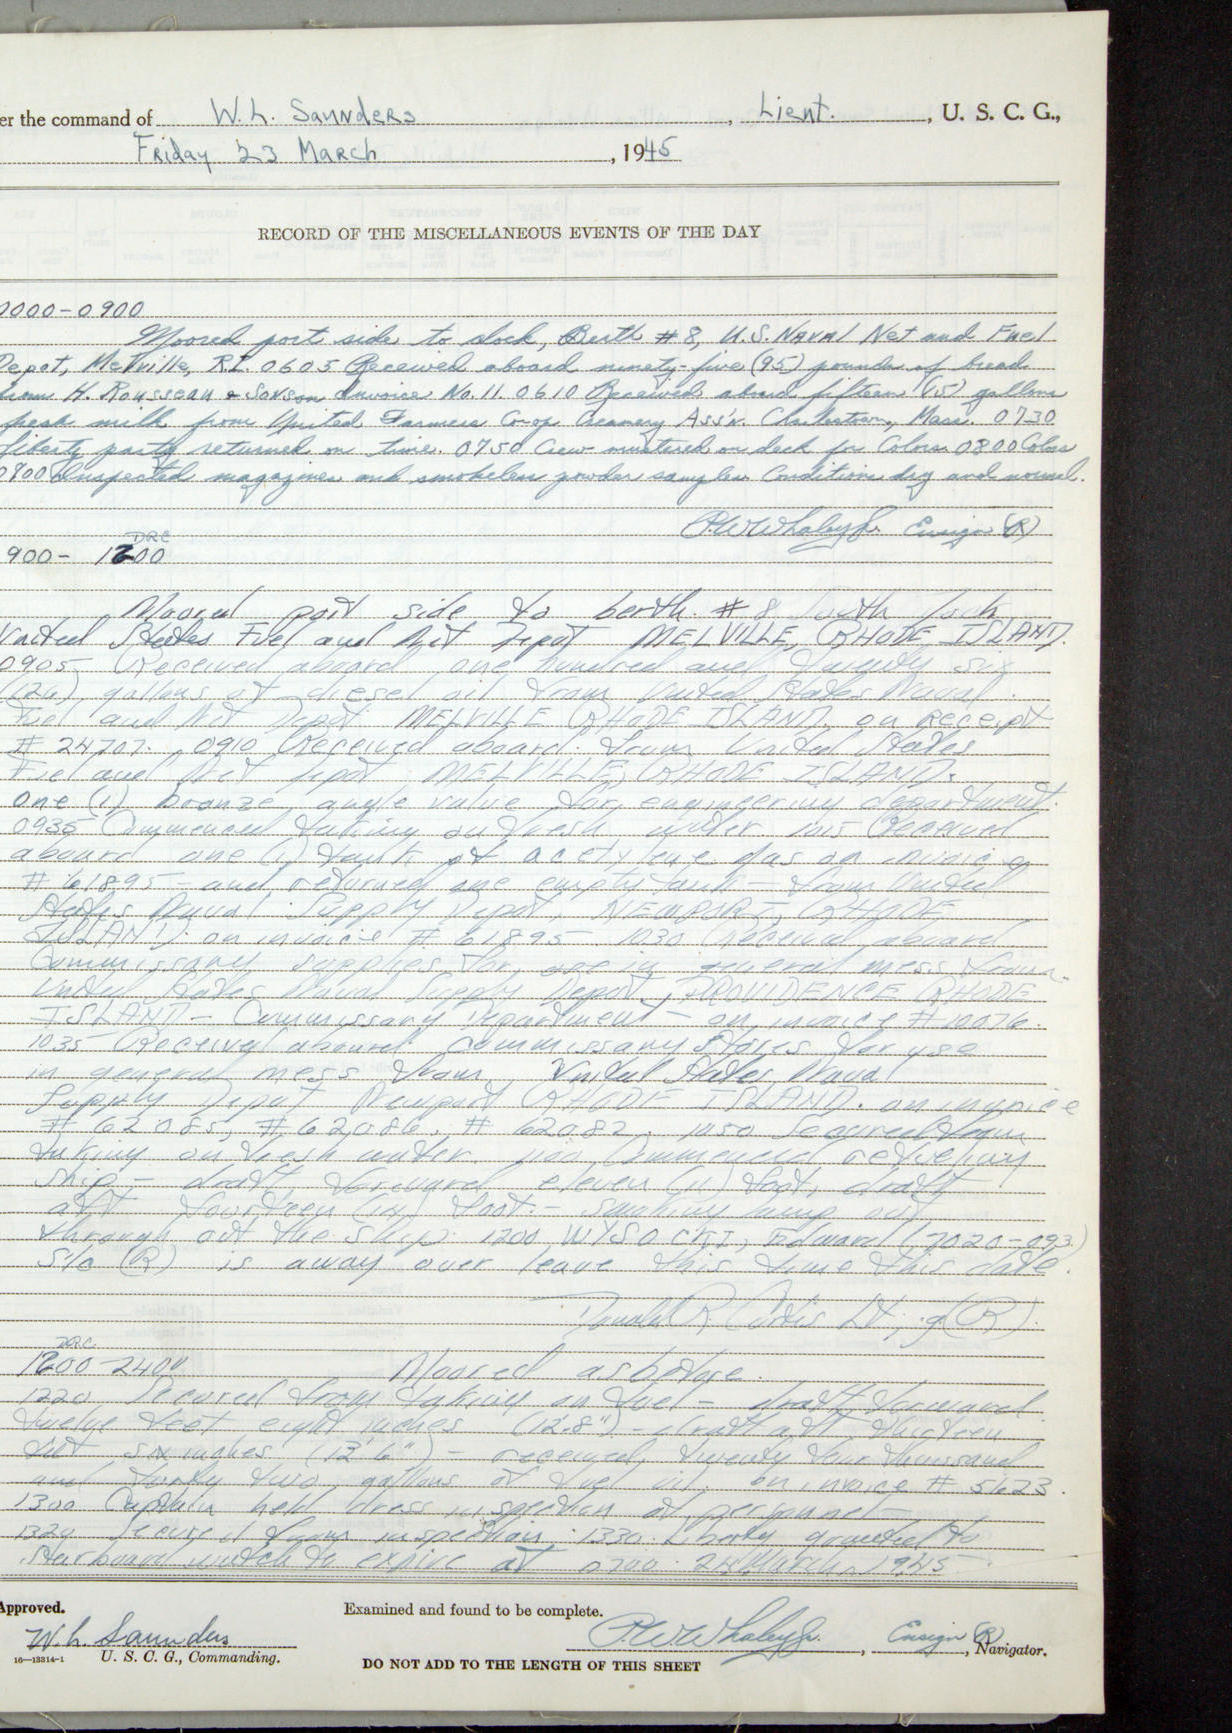 er the command of W. L. Saunders, Lieut., U. S. C. G.,
Friday 23 March, 1945
RECORD OF THE MISCELLANEOUS EVENTS OF THE DAY
0000-0900
Moored port side to dock, Berth #8, U.S. Naval Net and Fuel
Depot, Melville, R.I. 0605 Received aboard ninety-five (95) pounds of bread
from H. Rousseau & Sons on Invoice No. 11. 0610 Received aboard fifteen (15) gallons
fresh milk from United Farmers Co-op Creamery Ass'n. Charlestown, Mass. 0730
liberty party returned on time. 0750 Crew mustered on deck for Colors 0800 Colors
0800 Inspected magazines and smokeless powder samples. Conditions dry and normal.
P.W. Whaley Jr. Ensign (R)
DRC
900- 1200
Moored port side to berth. #8 South
United States Fuel and Net Depot MELVILLE, RHODE ISLAND.
0905 Received aboard one hundred and twenty six
(126) gallons of diesel oil from United States Naval
Fuel and Net Depot MELVILLE RHODE ISLAND. on Receipt
# 24707. 0910 Received aboard. from United States
Fuel and Net Depot MELVILLE, RHODE ISLAND.
one (1) bronze angle valve for engineering department.
0935 Commenced taking on fresh water. 1015 Received
aboard one (1) tank of acetylene gas on invoice
# 61895 - and returned one empty tank - from United
States Naval Supply Depot NEWPORT, RHODE
ISLAND. on invoice # 61895 1030 Received aboard
Commissary supplies for use in general mess from
United States Naval Supply Depot, PROVIDENCE RHODE
ISLAND - Commissary Department - on invoice # 10076.
1035 Received aboard commissary stores for use
in general mess from United States Naval
Supply Depot Newport RHODE ISLAND. on invoice
# 62085, # 62086, # 62082. 1050 Secured from
taking on fresh water. 1100 Commenced refueling
ship - draft forward eleven (11) feet, draft
aft fourteen (14) feet. - Smoking lamp out
through out the ship. 1200 WYSOCKI, Edward (7020-093)
S1c (R) is away over leave this time this date.
Donald R Curtis Lt. jg (R).
DRC
1200-2400 Moored as before.
1220 Secured from taking on fuel - draft forward
twelve feet eight inches (12'.8") - draft aft thirteen
feet six inches (13'6") - received, twenty four thousand
and forty two, gallons of fuel oil, on invoice # 5623.
1300 Captain held dress inspection of personnel -
1320 Secured from inspection. 1330 Liberty granted to
Starboard watch to expire at 0700 24 March 1945
Approved. Examined and found to be complete.
W. L. Saunders P.W. Whaley Jr., Ensign (R), Navigator.
16-13314-1 U. S. C. G., Commanding.
DO NOT ADD TO THE LENGTH OF THIS SHEET